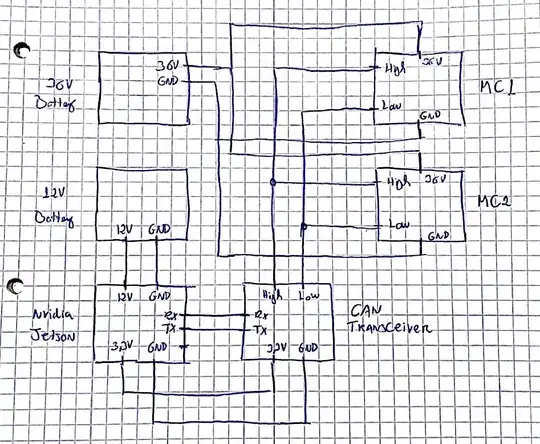 36V
GND
36V
Battery
High
36V
Low
GND
MC1
12V
Battery
12V
GND
High
36V
Low
GND
MC2
Nvidia
Jetson
12V
GND
Rx
TX
3,3V
GND
High
Low
Rx
TX
3,3V
GND
CAN
Transceiver